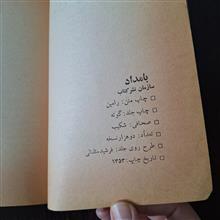 بامداد
سازمان نشر کتاب
چاپ متن: رامین
چاپ جلد: گوته
صحافی: شکیب
تعداد: دو هزار نسخه
طرح روی جلد: فرشید مثقالی
تاریخ چاپ: ۱۳۵۳